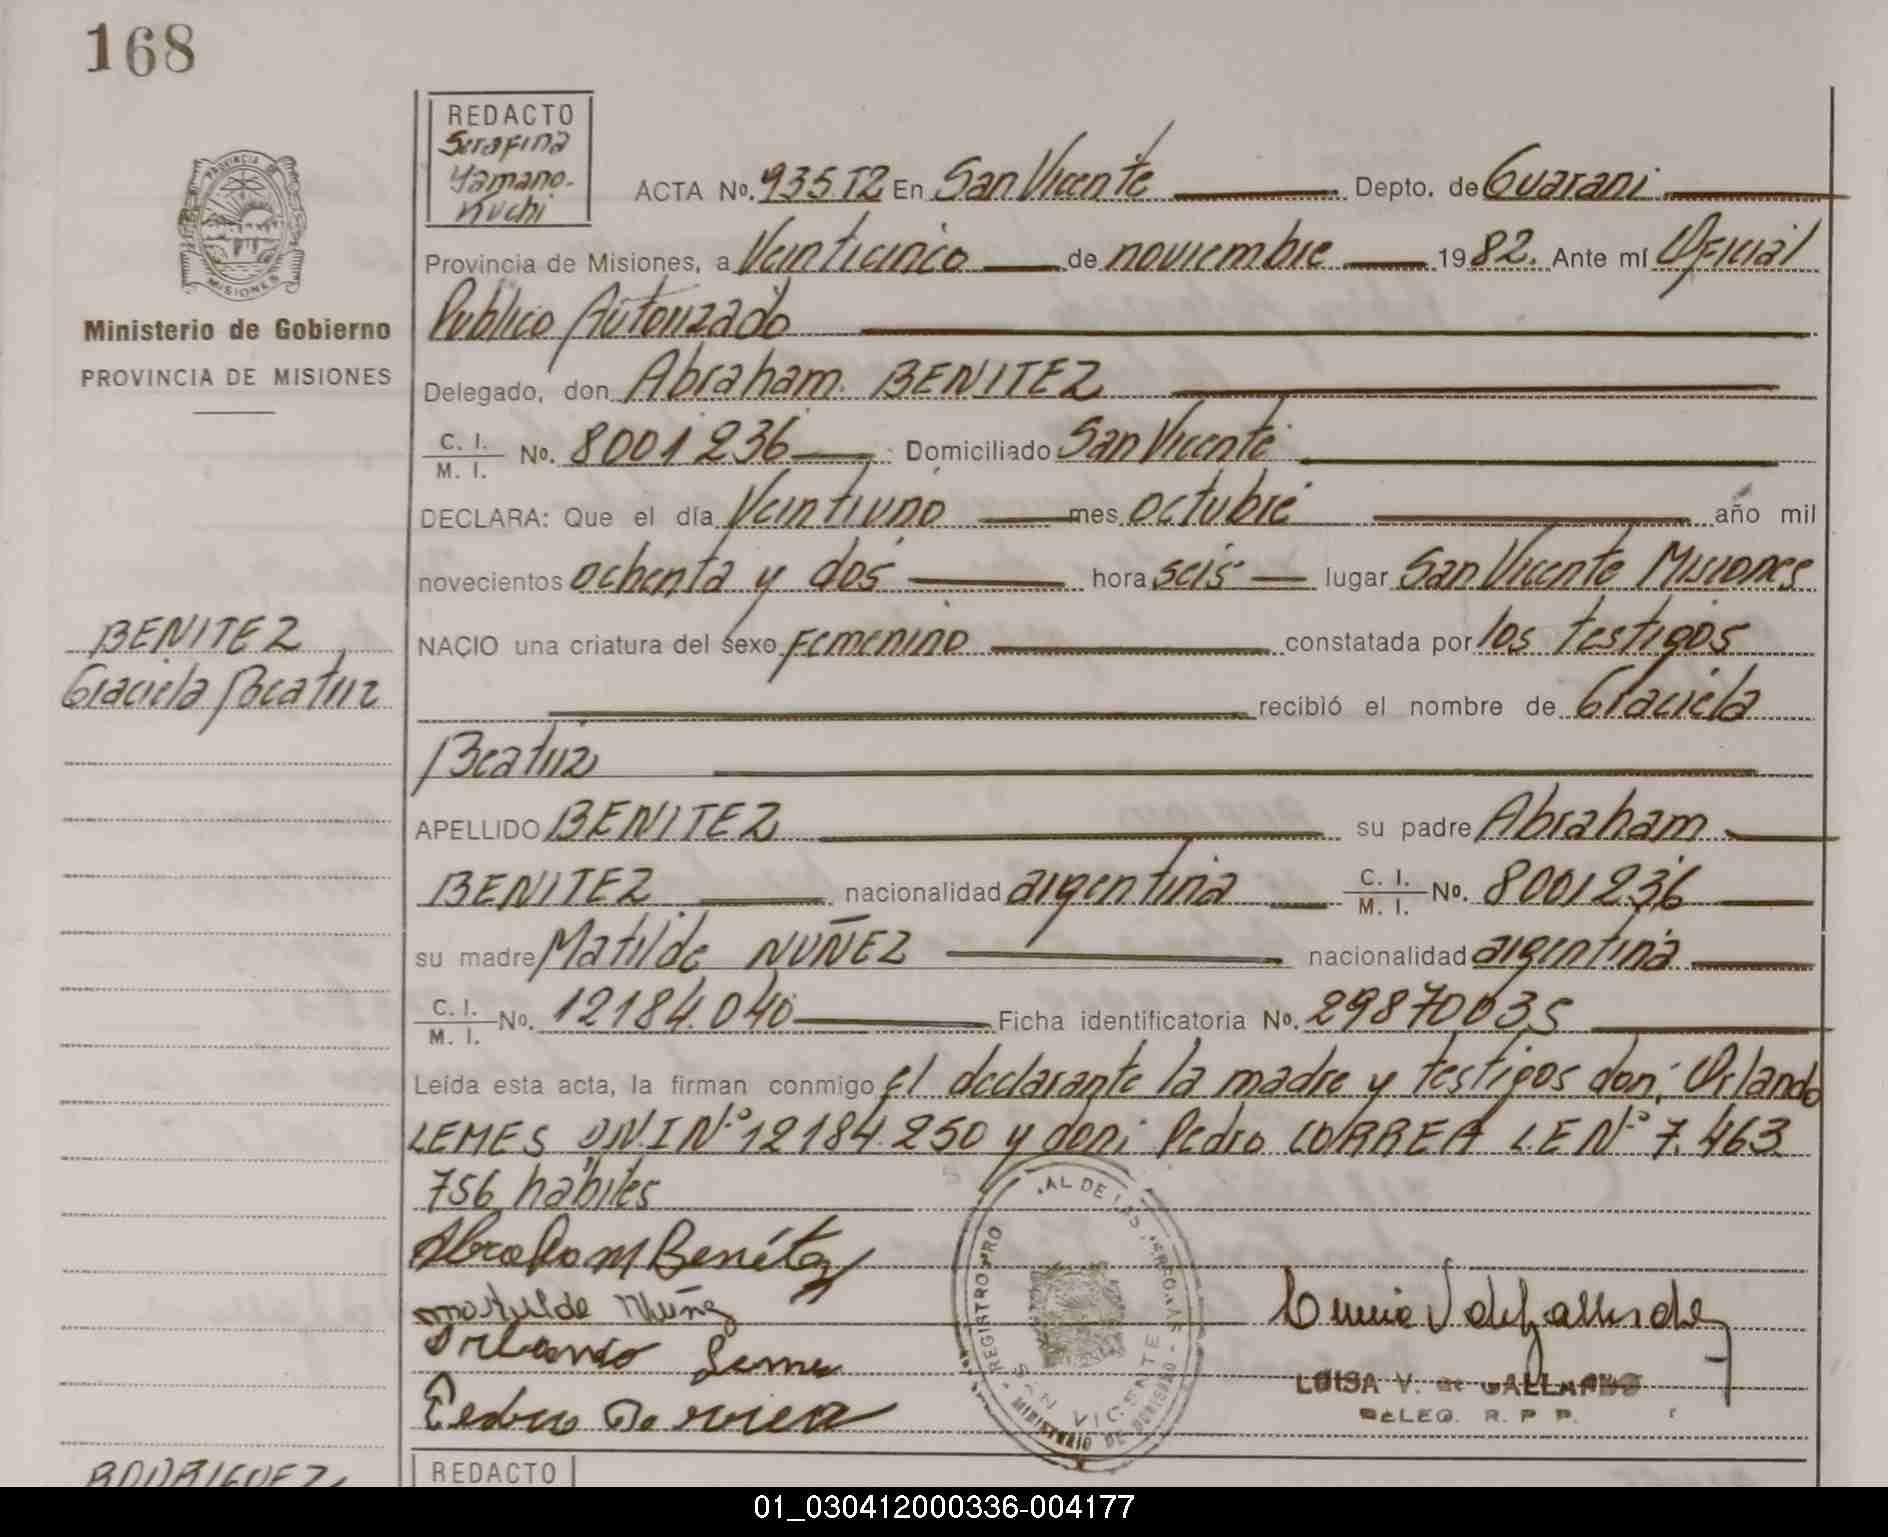 168
REDACTO
Serafina
Yamano-
Kuchi
PROVINCIA DE
MISIONES
Ministerio de Gobierno
PROVINCIA DE MISIONES
ACTA No. 935 T2 En San Vicente Depto. de Guarani
Provincia de Misiones, a Veinticinco de noviembre 1982. Ante mí Oficial
Publico Autorizado
Delegado, don Abraham BENITEZ
C. I. / M. I. No. 8001236 Domiciliado San Vicente
DECLARA: Que el día Veintiuno mes octubre año mil
novecientos ochenta y dos hora seis lugar San Vicente Misiones
NACIO una criatura del sexo Femenino constatada por los testigos
recibió el nombre de Graciela
Beatriz
BENITEZ
Graciela Beatriz
APELLIDO BENITEZ su padre Abraham
BENITEZ nacionalidad argentina C. I. / M. I. No. 8001236
su madre Matilde NUÑEZ nacionalidad argentina
C. I. / M. I. No. 12184.040 Ficha identificatoria No. 29870035
Leída esta acta, la firman conmigo el declarante la madre y testigos don; Orlando
LEMES D.N.I Nº 12184.250 y don; Pedro CORREA L.E Nº 7.463.
756 hábiles
Abraham Benítez
Matilde Núñez
Orlando Leme
Pedro
REGISTRO
AL DE LAS
SAN VICENTE
MINISTERIO DE GOBIERNO
LUISA V. de GALLARDO
DELEG. R. P. P.
RODRIGUEZ
REDACTO
01_030412000336-004177